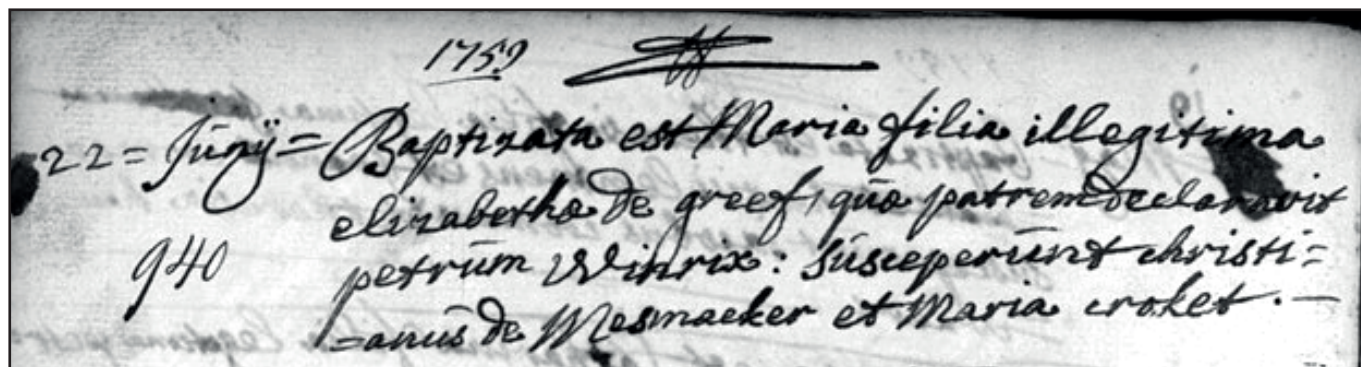 1759
22 = Junÿ = Baptizata est Maria filia illegitima
elizabethæ de greef, quæ patrem declaravit
940
petrŭm Winrix: sŭsceperŭnt christi=
=anŭs de Mesmaeker et Maria croket. —